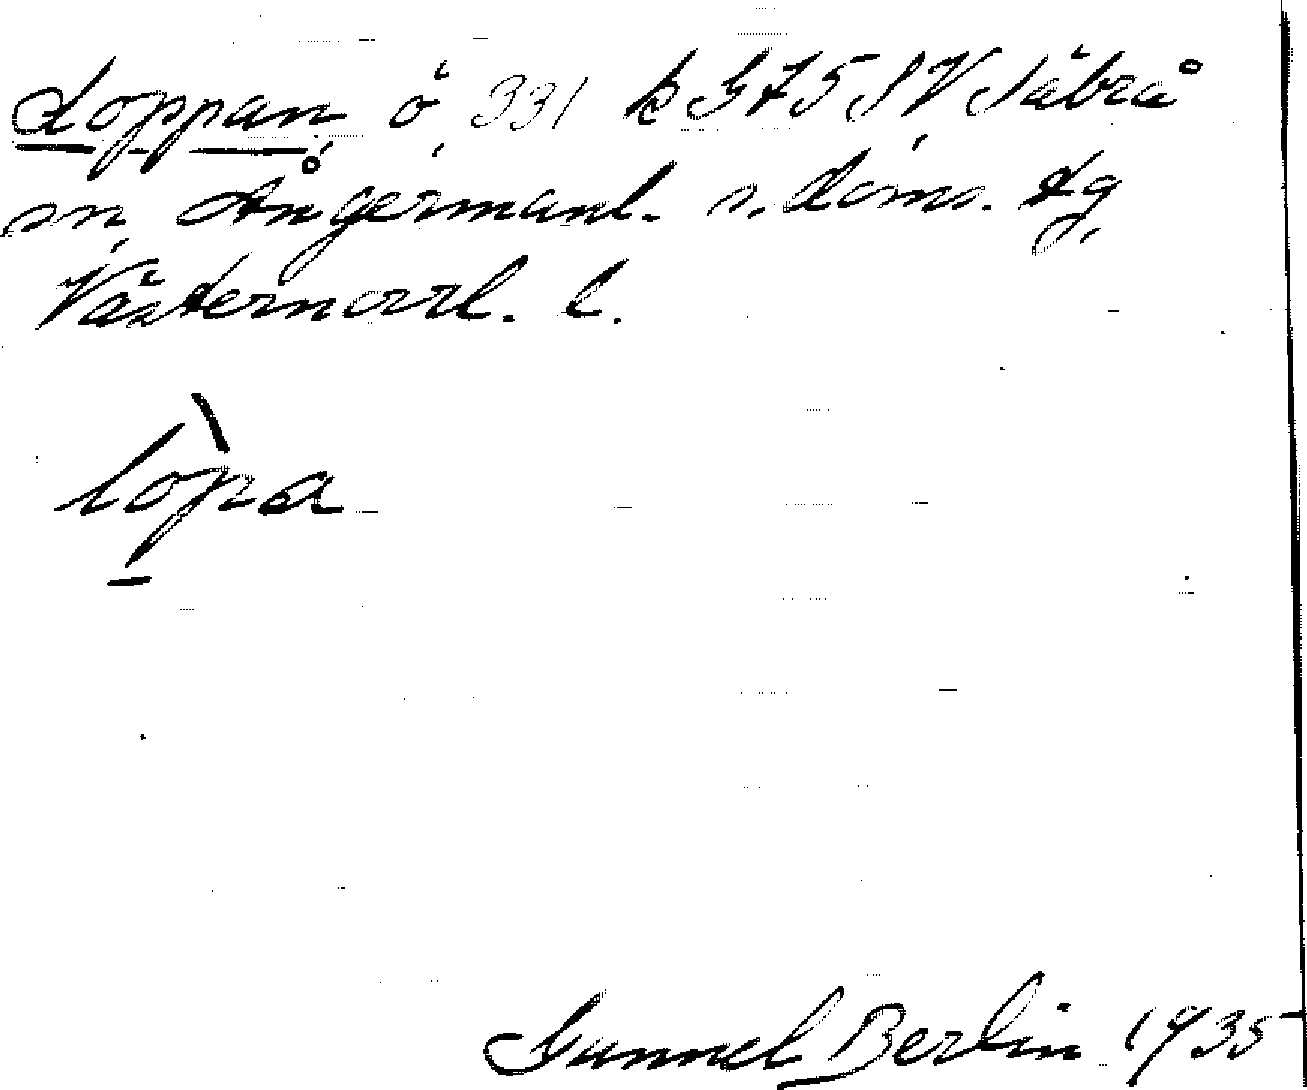 Loppan ö 331 k G 75 SV Säbrå
sn Ångermanl. s. doms. tg
Västernorrl. l.
lòpa
Gunnel Berlin 1935